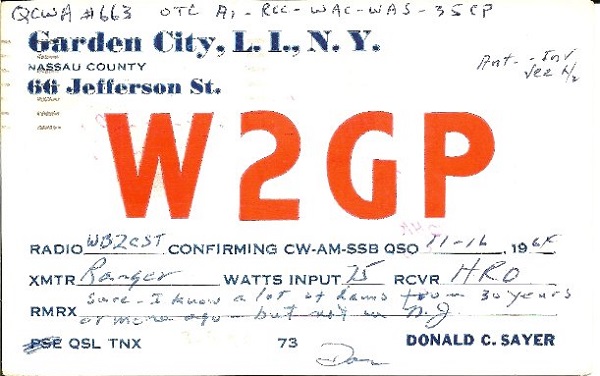 QCWA #663 OTC A1 - RCC - WAC - WAS - 35CP
Garden City, L. I., N. Y.
NASSAU COUNTY
66 Jefferson St.
Ant. - Inv
Vee
W2GP
RADIO WB2CST CONFIRMING CW-AM-SSB QSO 11-16, 196
XMTR Ranger WATTS INPUT 75 RCVR HRO
Sure - I know a lot of hams from 30 years
RMRX or more ago - but not in N.J.
PSE QSL TNX 73 Don DONALD C. SAYER